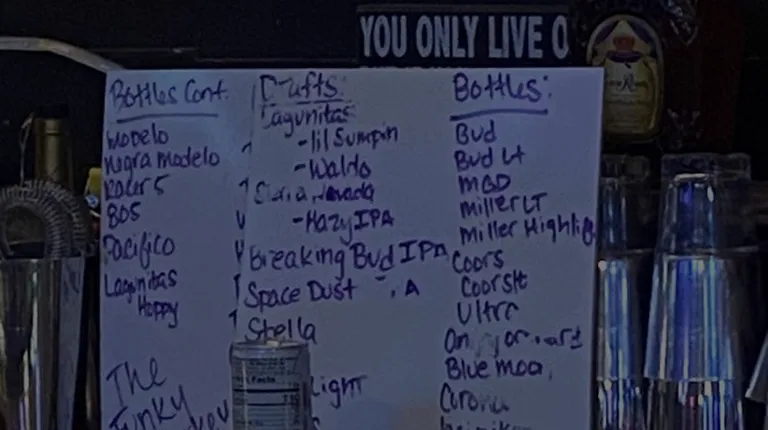 YOU ONLY LIVE O
Bottles Cont.
Modelo
Negra Modelo
Racer 5
805
Pacifico
Lagunitas
Hoppy
The
Funky
Drafts:
Lagunitas
-lil Sumpin
-Waldo
-Hazy IPA
Breaking Bud IPA
Space Dust
Stella
Light
Bottles:
Bud
Bud Lt
MGD
Miller LT
Miller Highlife
Coors
Coors lt
Ultra
Blue moon
Corona
Facts